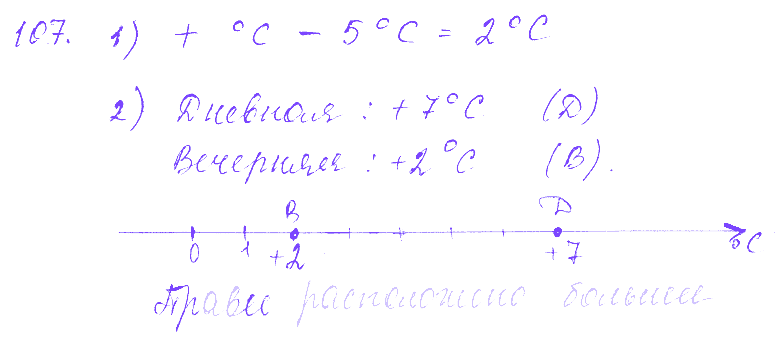 107. 1) + °C - 5°C = 2°C
2) Дневная : +7°C (Д)
Вечерняя : +2°C (В).
В Д
0 1 +2 +7 °C
Правее расположено большее